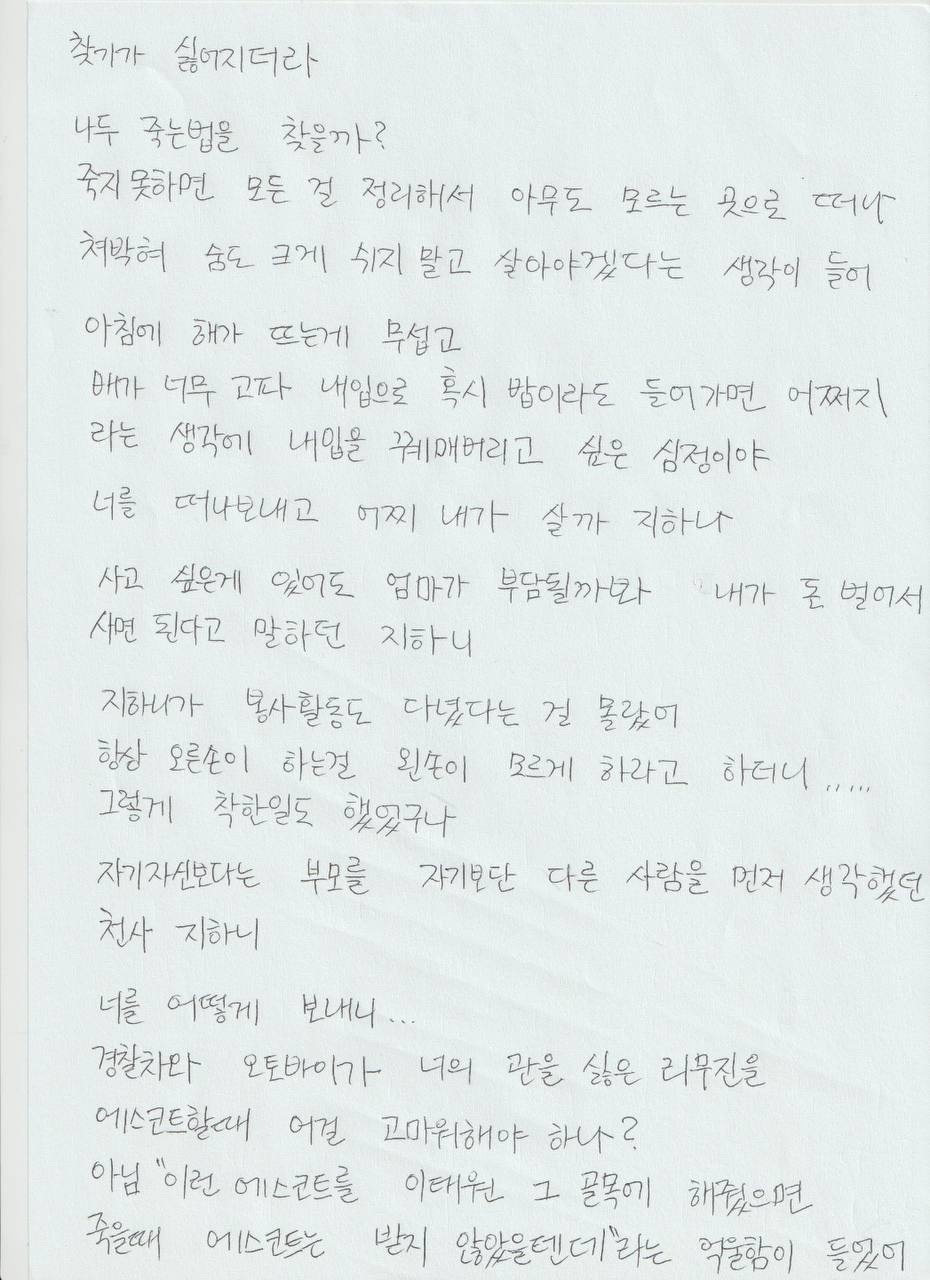 찾기가 싫어지더라
나두 죽는법을 찾을까?
죽지못하면 모든 걸 정리해서 아무도 모르는 곳으로 떠나
쳐박혀 숨도 크게 쉬지 말고 살아야겠다는 생각이 들어
아침에 해가 뜨는게 무섭고
배가 너무 고파 내입으로 혹시 밥이라도 들어가면 어쩌지
라는 생각에 내입을 꿰매버리고 싶은 심정이야
너를 떠나보내고 어찌 내가 살까 지하나
사고 싶은게 있어도 엄마가 부담될까봐 내가 돈 벌어서
사면 된다고 말하던 지하니
지하니가 봉사활동도 다녔다는 걸 몰랐어
항상 오른손이 하는걸 왼손이 모르게 하라고 하더니.....
그렇게 착한일도 했었구나
자기자신보다는 부모를 자기보단 다른 사람을 먼저 생각했던
천사 지하니
너를 어떻게 보내니...
경찰차와 오토바이가 너의 관을 싫은 리무진을
에스코트할때 이걸 고마워해야 하나?
아님 "이런 에스코트를 이태원 그 골목에 해줬으면
죽을때 에스코트는 받지 않았을텐데"라는 억울함이 들었어